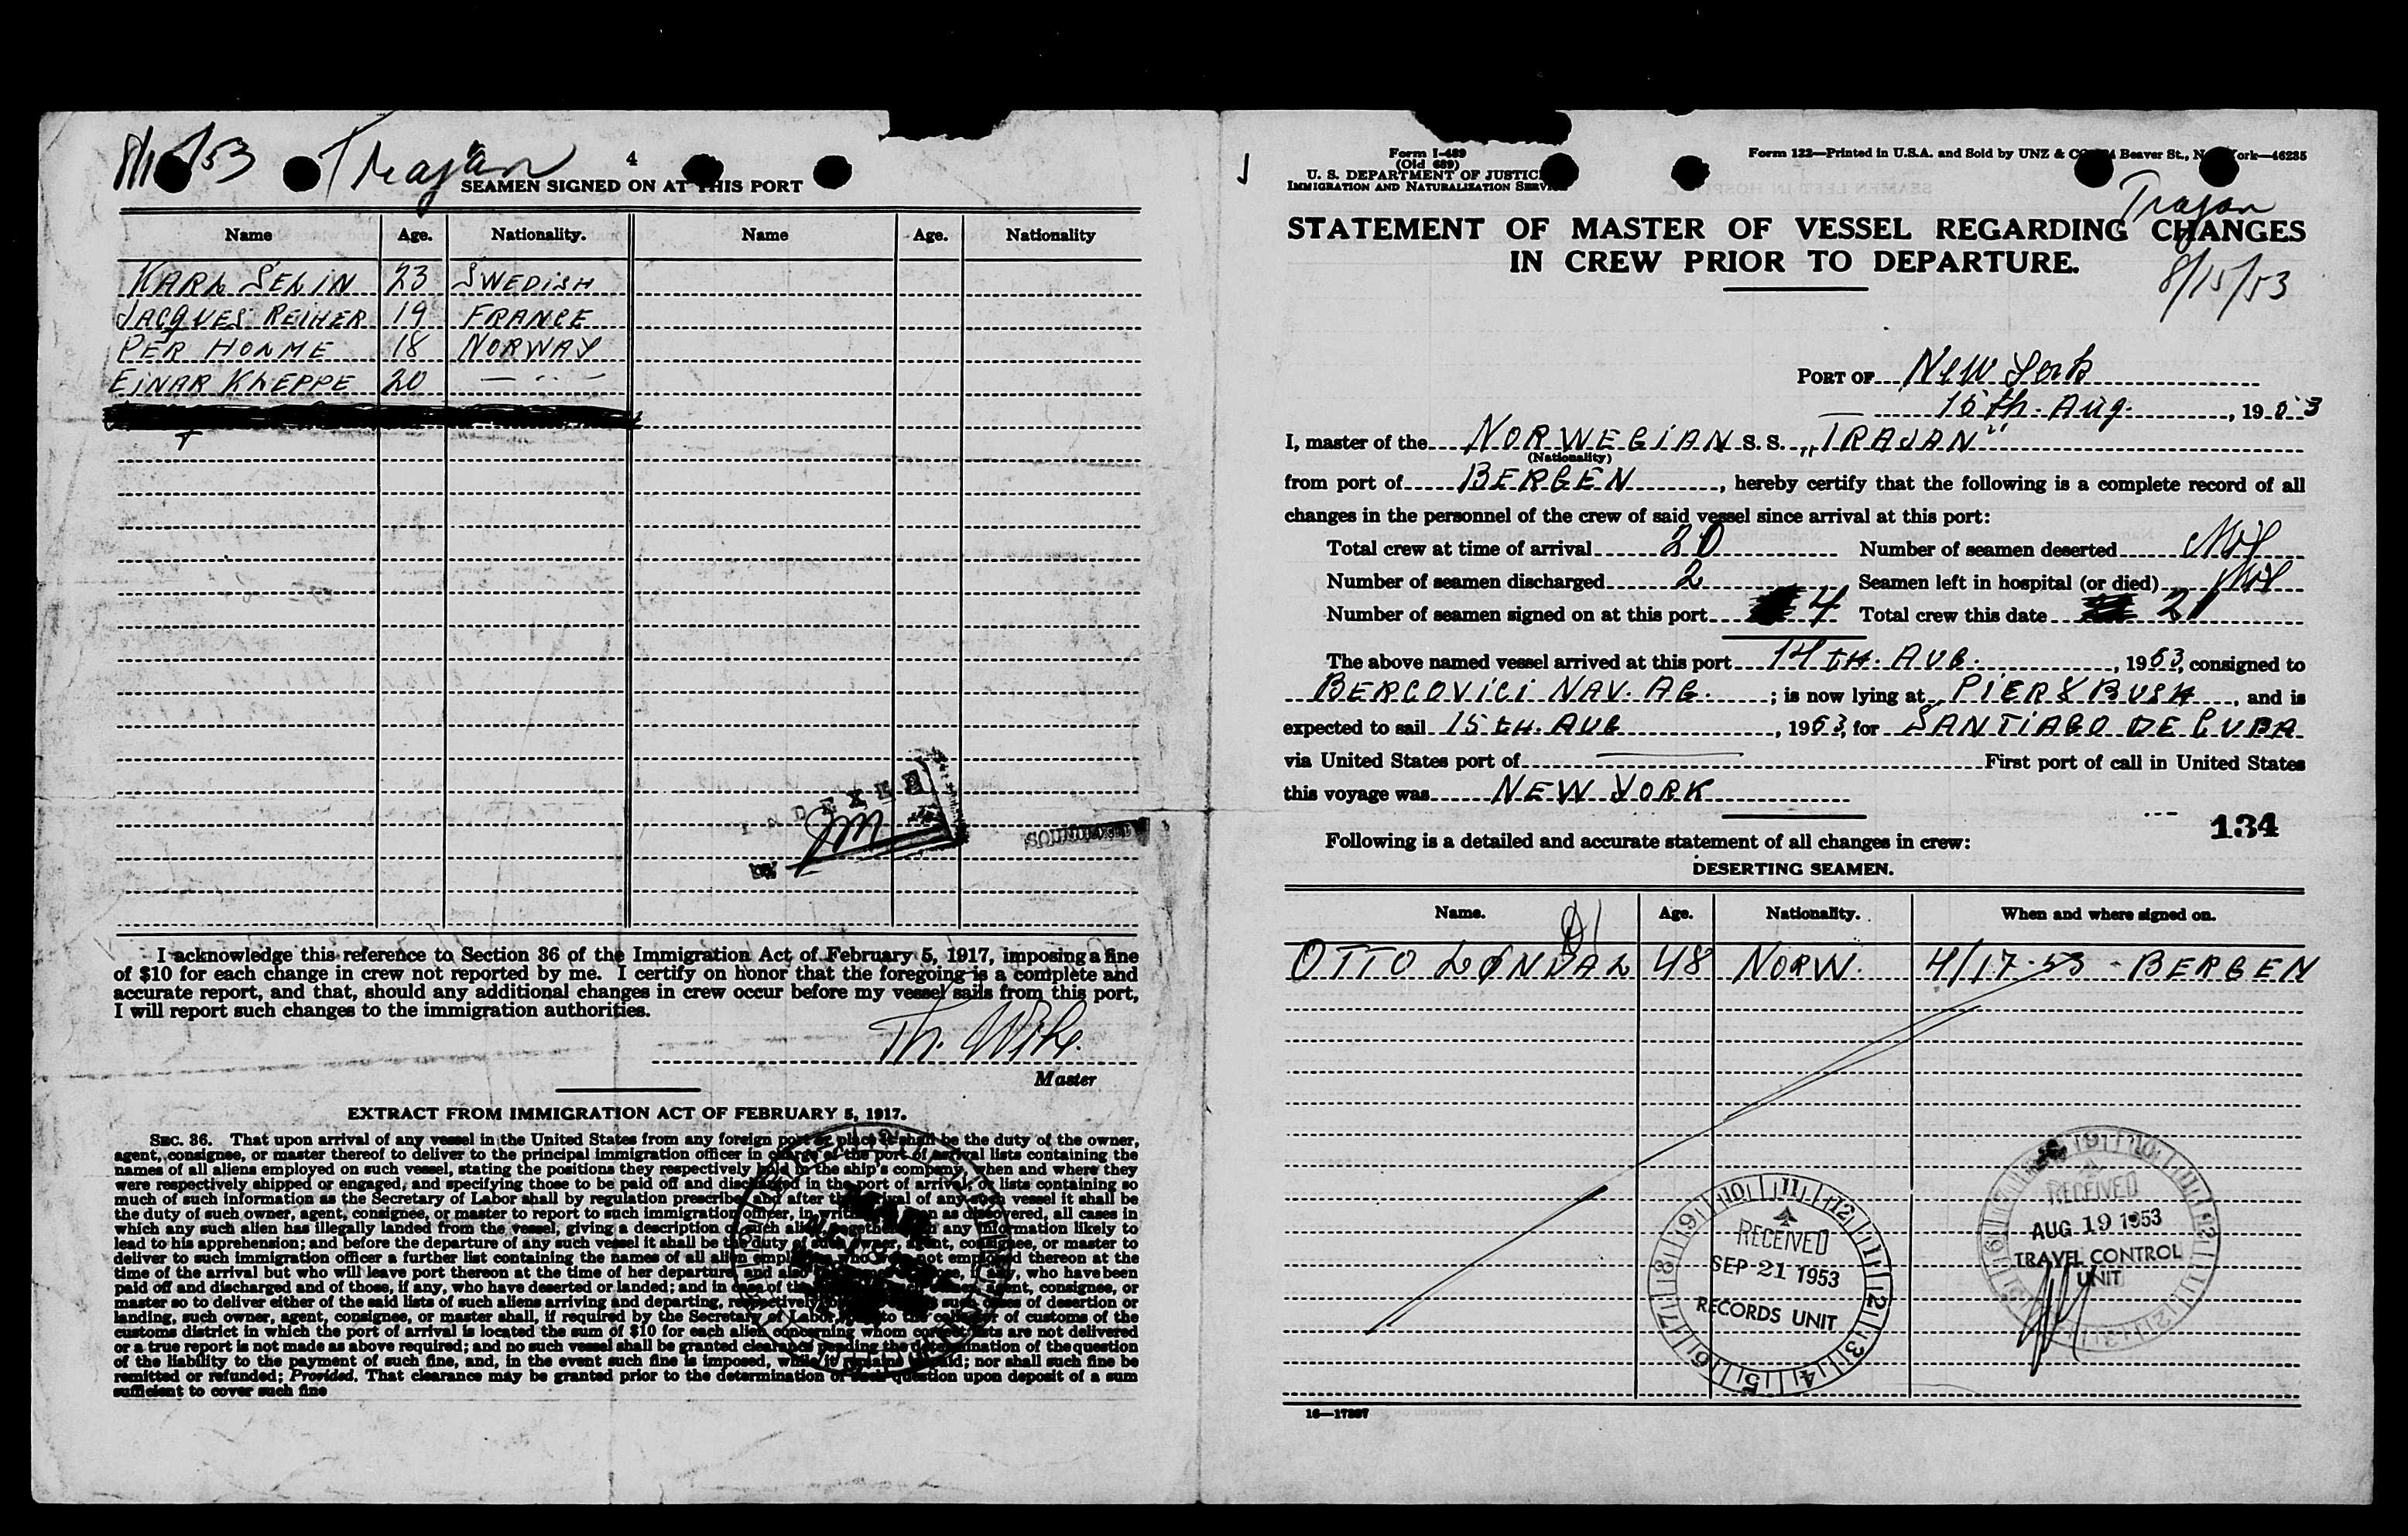 8/15/53 Trajan
4
SEAMEN SIGNED ON AT THIS PORT
Name Age. Nationality. Name Age. Nationality
KARL SELIN 23 SWEDISH
JACQUES REIHER 19 FRANCE
PER HOLME 18 NORWAY
EINAR KLEPPE 20 — ·· —
INDEXED
BY JM
SOUNDEXED
I acknowledge this reference to Section 36 of the Immigration Act of February 5, 1917, imposing a fine
of $10 for each change in crew not reported by me. I certify on honor that the foregoing is a complete and
accurate report, and that, should any additional changes in crew occur before my vessel sails from this port,
I will report such changes to the immigration authorities.
Th. Wik.
Master
EXTRACT FROM IMMIGRATION ACT OF FEBRUARY 5, 1917.
SEC. 36. That upon arrival of any vessel in the United States from any foreign port or place it shall be the duty of the owner,
agent, consignee, or master thereof to deliver to the principal immigration officer in charge of the port of arrival lists containing the
names of all aliens employed on such vessel, stating the positions they respectively hold in the ship's company, when and where they
were respectively shipped or engaged, and specifying those to be paid off and discharged in the port of arrival; or lists containing so
much of such information as the Secretary of Labor shall by regulation prescribe; and after the arrival of any such vessel it shall be
the duty of such owner, agent, consignee, or master to report to such immigration officer, in writing as soon as discovered, all cases in
which any such alien has illegally landed from the vessel, giving a description of such alien together with any information likely to
lead to his apprehension; and before the departure of any such vessel it shall be the duty of such owner, agent, consignee, or master to
deliver to such immigration officer a further list containing the names of all alien employees who were not employed thereon at the
time of the arrival but who will leave port thereon at the time of her departure, and also the names of those, if any, who have been
paid off and discharged and of those, if any, who have deserted or landed; and in case of the failure of such owner, agent, consignee, or
master so to deliver either of the said lists of such aliens arriving and departing, respectively, or so to report such cases of desertion or
landing, such owner, agent, consignee, or master shall, if required by the Secretary of Labor, pay to the collector of customs of the
customs district in which the port of arrival is located the sum of $10 for each alien concerning whom correct lists are not delivered
or a true report is not made as above required; and no such vessel shall be granted clearance pending the determination of the question
of the liability to the payment of such fine, and, in the event such fine is imposed, while it remains unpaid; nor shall such fine be
remitted or refunded; Provided, That clearance may be granted prior to the determination of such question upon deposit of a sum
sufficient to cover such fine
Form I-489
(Old 689)
U. S. DEPARTMENT OF JUSTICE
IMMIGRATION AND NATURALIZATION SERVICE
Form 122—Printed in U.S.A. and Sold by UNZ & CO., Beaver St., New York—46235
Trajan
STATEMENT OF MASTER OF VESSEL REGARDING CHANGES
IN CREW PRIOR TO DEPARTURE.
8/15/53
PORT OF New York
15th. Aug. , 1953
I, master of the NORWEGIAN S. S. „TRAJAN"
(Nationality)
from port of BERGEN , hereby certify that the following is a complete record of all
changes in the personnel of the crew of said vessel since arrival at this port:
Total crew at time of arrival 20 Number of seamen deserted
Number of seamen discharged 2 Seamen left in hospital (or died)
Number of seamen signed on at this port 4 Total crew this date 21
The above named vessel arrived at this port 14TH. AUG. , 1953, consigned to
BERCOVICI NAV. AG. ; is now lying at PIER 8 BUSH , and is
expected to sail 15TH. AUG , 1953, for SANTIAGO DE CUBA
via United States port of — First port of call in United States
this voyage was NEW YORK
134
Following is a detailed and accurate statement of all changes in crew:
DESERTING SEAMEN.
Name. Age. Nationality. When and where signed on.
OTTO LØNDAL 48 NORW. 4/17-53 - BERGEN
RECEIVED
SEP 21 1953
RECORDS UNIT
RECEIVED
AUG 19 1953
TRAVEL CONTROL
UNIT
16—17887